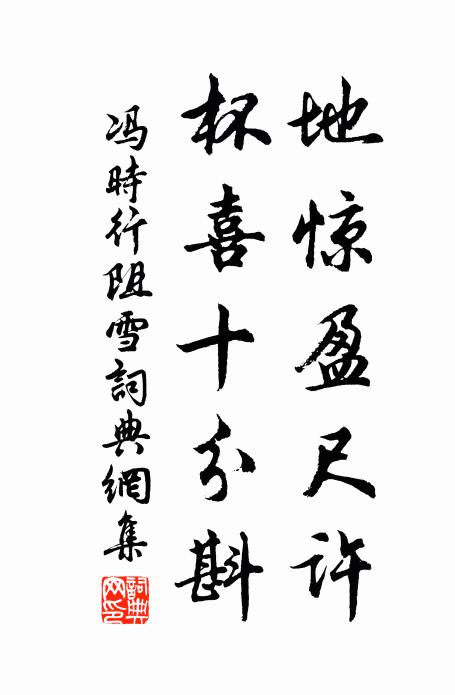 地惊盈尺许
杯喜十分斟
冯時行阻雪詞典網集
詞典
网印